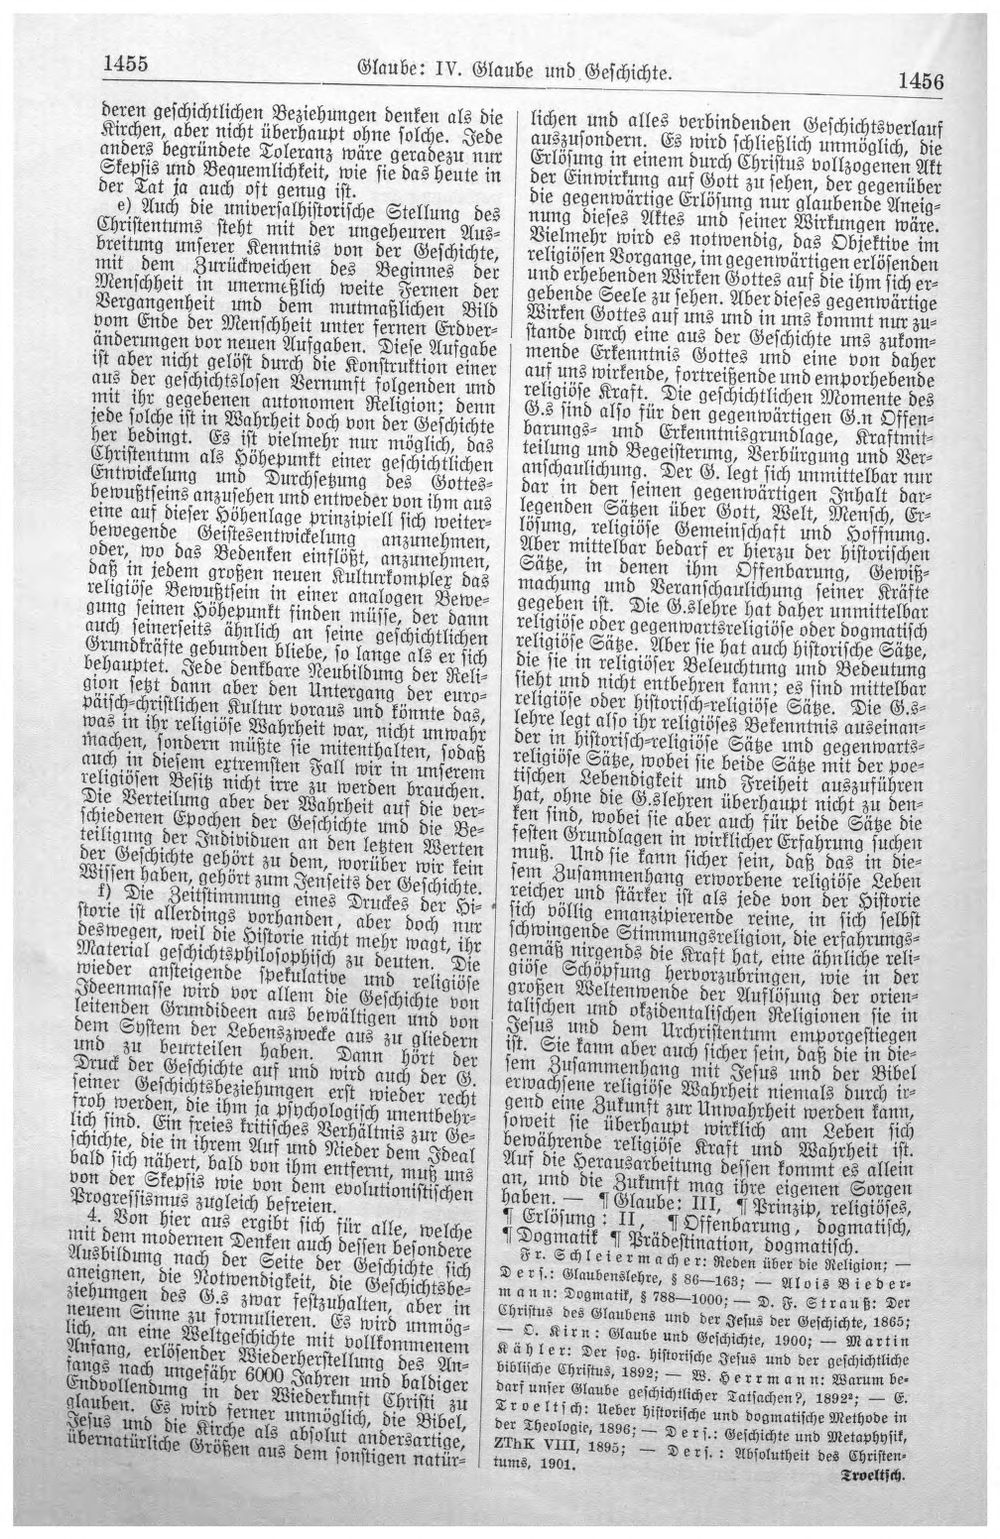 1455
Glaube: IV. Glaube und Geschichte.
1456
deren geschichtlichen Beziehungen denken als die
Kirchen, aber nicht überhaupt ohne solche. Jede
anders begründete Toleranz wäre geradezu nur
Skepsis und Bequemlichkeit, wie sie das heute in
der Tat ja auch oft genug ist.
e) Auch die universalhistorische Stellung des
Christentums steht mit der ungeheuren Aus-
breitung unserer Kenntnis von der Geschichte,
mit dem Zurückweichen des Beginnes der
Menschheit in unermeßlich weite Fernen der
Vergangenheit und dem mutmaßlichen Bild
vom Ende der Menschheit unter fernen Erdver-
änderungen vor neuen Aufgaben. Diese Aufgabe
ist aber nicht gelöst durch die Konstruktion einer
aus der geschichtslosen Vernunft folgenden und
mit ihr gegebenen autonomen Religion; denn
jede solche ist in Wahrheit doch von der Geschichte
her bedingt. Es ist vielmehr nur möglich, das
Christentum als Höhepunkt einer geschichtlichen
Entwickelung und Durchsetzung des Gottes-
bewußtseins anzusehen und entweder von ihm aus
eine auf dieser Höhenlage prinzipiell sich weiter-
bewegende Geistesentwickelung anzunehmen,
oder, wo das Bedenken einflößt, anzunehmen,
daß in jedem großen neuen Kulturkomplex das
religiöse Bewußtsein in einer analogen Bewe-
gung seinen Höhepunkt finden müsse, der dann
auch seinerseits ähnlich an seine geschichtlichen
Grundkräfte gebunden bliebe, so lange als er sich
behauptet. Jede denkbare Neubildung der Reli-
gion setzt dann aber den Untergang der euro-
päisch-christlichen Kultur voraus und könnte das,
was in ihr religiöse Wahrheit war, nicht unwahr
machen, sondern müßte sie mitenthalten, sodaß
auch in diesem extremsten Fall wir in unserem
religiösen Besitz nicht irre zu werden brauchen.
Die Verteilung aber der Wahrheit auf die ver-
schiedenen Epochen der Geschichte und die Be-
teiligung der Individuen an den letzten Werten
der Geschichte gehört zu dem, worüber wir kein
Wissen haben, gehört zum Jenseits der Geschichte.
f) Die Zeitstimmung eines Druckes der Hi-
storie ist allerdings vorhanden, aber doch nur
deswegen, weil die Historie nicht mehr wagt, ihr
Material geschichtsphilosophisch zu deuten. Die
wieder ansteigende spekulative und religiöse
Ideenmasse wird vor allem die Geschichte von
leitenden Grundideen aus bewältigen und von
dem System der Lebenszwecke aus zu gliedern
und zu beurteilen haben. Dann hört der
Druck der Geschichte auf und wird auch der G.
seiner Geschichtsbeziehungen erst wieder recht
froh werden, die ihm ja psychologisch unentbehr-
lich sind. Ein freies kritisches Verhältnis zur Ge-
schichte, die in ihrem Auf und Nieder dem Ideal
bald sich nähert, bald von ihm entfernt, muß uns
von der Skepsis wie von dem evolutionistischen
Progressismus zugleich befreien.
4. Von hier aus ergibt sich für alle, welche
mit dem modernen Denken auch dessen besondere
Ausbildung nach der Seite der Geschichte sich
aneignen, die Notwendigkeit, die Geschichtsbe-
ziehungen des G.s zwar festzuhalten, aber in
neuem Sinne zu formulieren. Es wird unmög-
lich, an eine Weltgeschichte mit vollkommenem
Anfang, erlösender Wiederherstellung des An-
fangs nach ungefähr 6000 Jahren und baldiger
Endvollendung in der Wiederkunft Christi zu
glauben. Es wird ferner unmöglich, die Bibel,
Jesus und die Kirche als absolut andersartige,
übernatürliche Größen aus dem sonstigen natür-
lichen und alles verbindenden Geschichtsverlauf
auszusondern. Es wird schließlich unmöglich, die
Erlösung in einem durch Christus vollzogenen Akt
der Einwirkung auf Gott zu sehen, der gegenüber
die gegenwärtige Erlösung nur glaubende Aneig-
nung dieses Aktes und seiner Wirkungen wäre.
Vielmehr wird es notwendig, das Objektive im
religiösen Vorgange, im gegenwärtigen erlösenden
und erhebenden Wirken Gottes auf die ihm sich er-
gebende Seele zu sehen. Aber dieses gegenwärtige
Wirken Gottes auf uns und in uns kommt nur zu-
stande durch eine aus der Geschichte uns zukom-
mende Erkenntnis Gottes und eine von daher
auf uns wirkende, fortreißende und emporhebende
religiöse Kraft. Die geschichtlichen Momente des
G.s sind also für den gegenwärtigen G.n Offen-
barungs- und Erkenntnisgrundlage, Kraftmit-
teilung und Begeisterung, Verbürgung und Ver-
anschaulichung. Der G. legt sich unmittelbar nur
dar in den seinen gegenwärtigen Inhalt dar-
legenden Sätzen über Gott, Welt, Mensch, Er-
lösung, religiöse Gemeinschaft und Hoffnung.
Aber mittelbar bedarf er hierzu der historischen
Sätze, in denen ihm Offenbarung, Gewiß-
machung und Veranschaulichung seiner Kräfte
gegeben ist. Die G.slehre hat daher unmittelbar
religiöse oder gegenwartsreligiöse oder dogmatisch
religiöse Sätze. Aber sie hat auch historische Sätze,
die sie in religiöser Beleuchtung und Bedeutung
sieht und nicht entbehren kann; es sind mittelbar
religiöse oder historisch-religiöse Sätze. Die G.s-
lehre legt also ihr religiöses Bekenntnis auseinan-
der in historisch-religiöse Sätze und gegenwarts-
religiöse Sätze, wobei sie beide Sätze mit der poe-
tischen Lebendigkeit und Freiheit auszuführen
hat, ohne die G.slehren überhaupt nicht zu den-
ken sind, wobei sie aber auch für beide Sätze die
festen Grundlagen in wirklicher Erfahrung suchen
muß. Und sie kann sicher sein, daß das in die-
sem Zusammenhang erworbene religiöse Leben
reicher und stärker ist als jede von der Historie
sich völlig emanzipierende reine, in sich selbst
schwingende Stimmungsreligion, die erfahrungs-
gemäß nirgends die Kraft hat, eine ähnliche reli-
giöse Schöpfung hervorzubringen, wie in der
großen Weltenwende der Auflösung der orien-
talischen und okzidentalischen Religionen sie in
Jesus und dem Urchristentum emporgestiegen
ist. Sie kann aber auch sicher sein, daß die in die-
sem Zusammenhang mit Jesus und der Bibel
erwachsene religiöse Wahrheit niemals durch ir-
gend eine Zukunft zur Unwahrheit werden kann,
soweit sie überhaupt wirklich am Leben sich
bewährende religiöse Kraft und Wahrheit ist.
Auf die Herausarbeitung dessen kommt es allein
an, und die Zukunft mag ihre eigenen Sorgen
haben. — ¶ Glaube: III, ¶ Prinzip, religiöses,
¶ Erlösung: II, ¶ Offenbarung, dogmatisch,
¶ Dogmatik ¶ Prädestination, dogmatisch.
Fr. Schleiermacher: Reden über die Religion; —
Ders.: Glaubenslehre, § 86—163; — Alois Bieder-
mann: Dogmatik, § 788—1000; — D. F. Strauß: Der
Christus des Glaubens und der Jesus der Geschichte, 1865;
— O. Kirn: Glaube und Geschichte, 1900; — Martin
Kähler: Der sog. historische Jesus und der geschichtliche
biblische Christus, 1892; — W. Herrmann: Warum be-
darf unser Glaube geschichtlicher Tatsachen?, 1892²; — E.
Troeltsch: Ueber historische und dogmatische Methode in
der Theologie, 1896; — Ders.: Geschichte und Metaphysik,
ZThK VIII, 1895; — Ders.: Absolutheit des Christen-
tums, 1901.
Troeltsch.